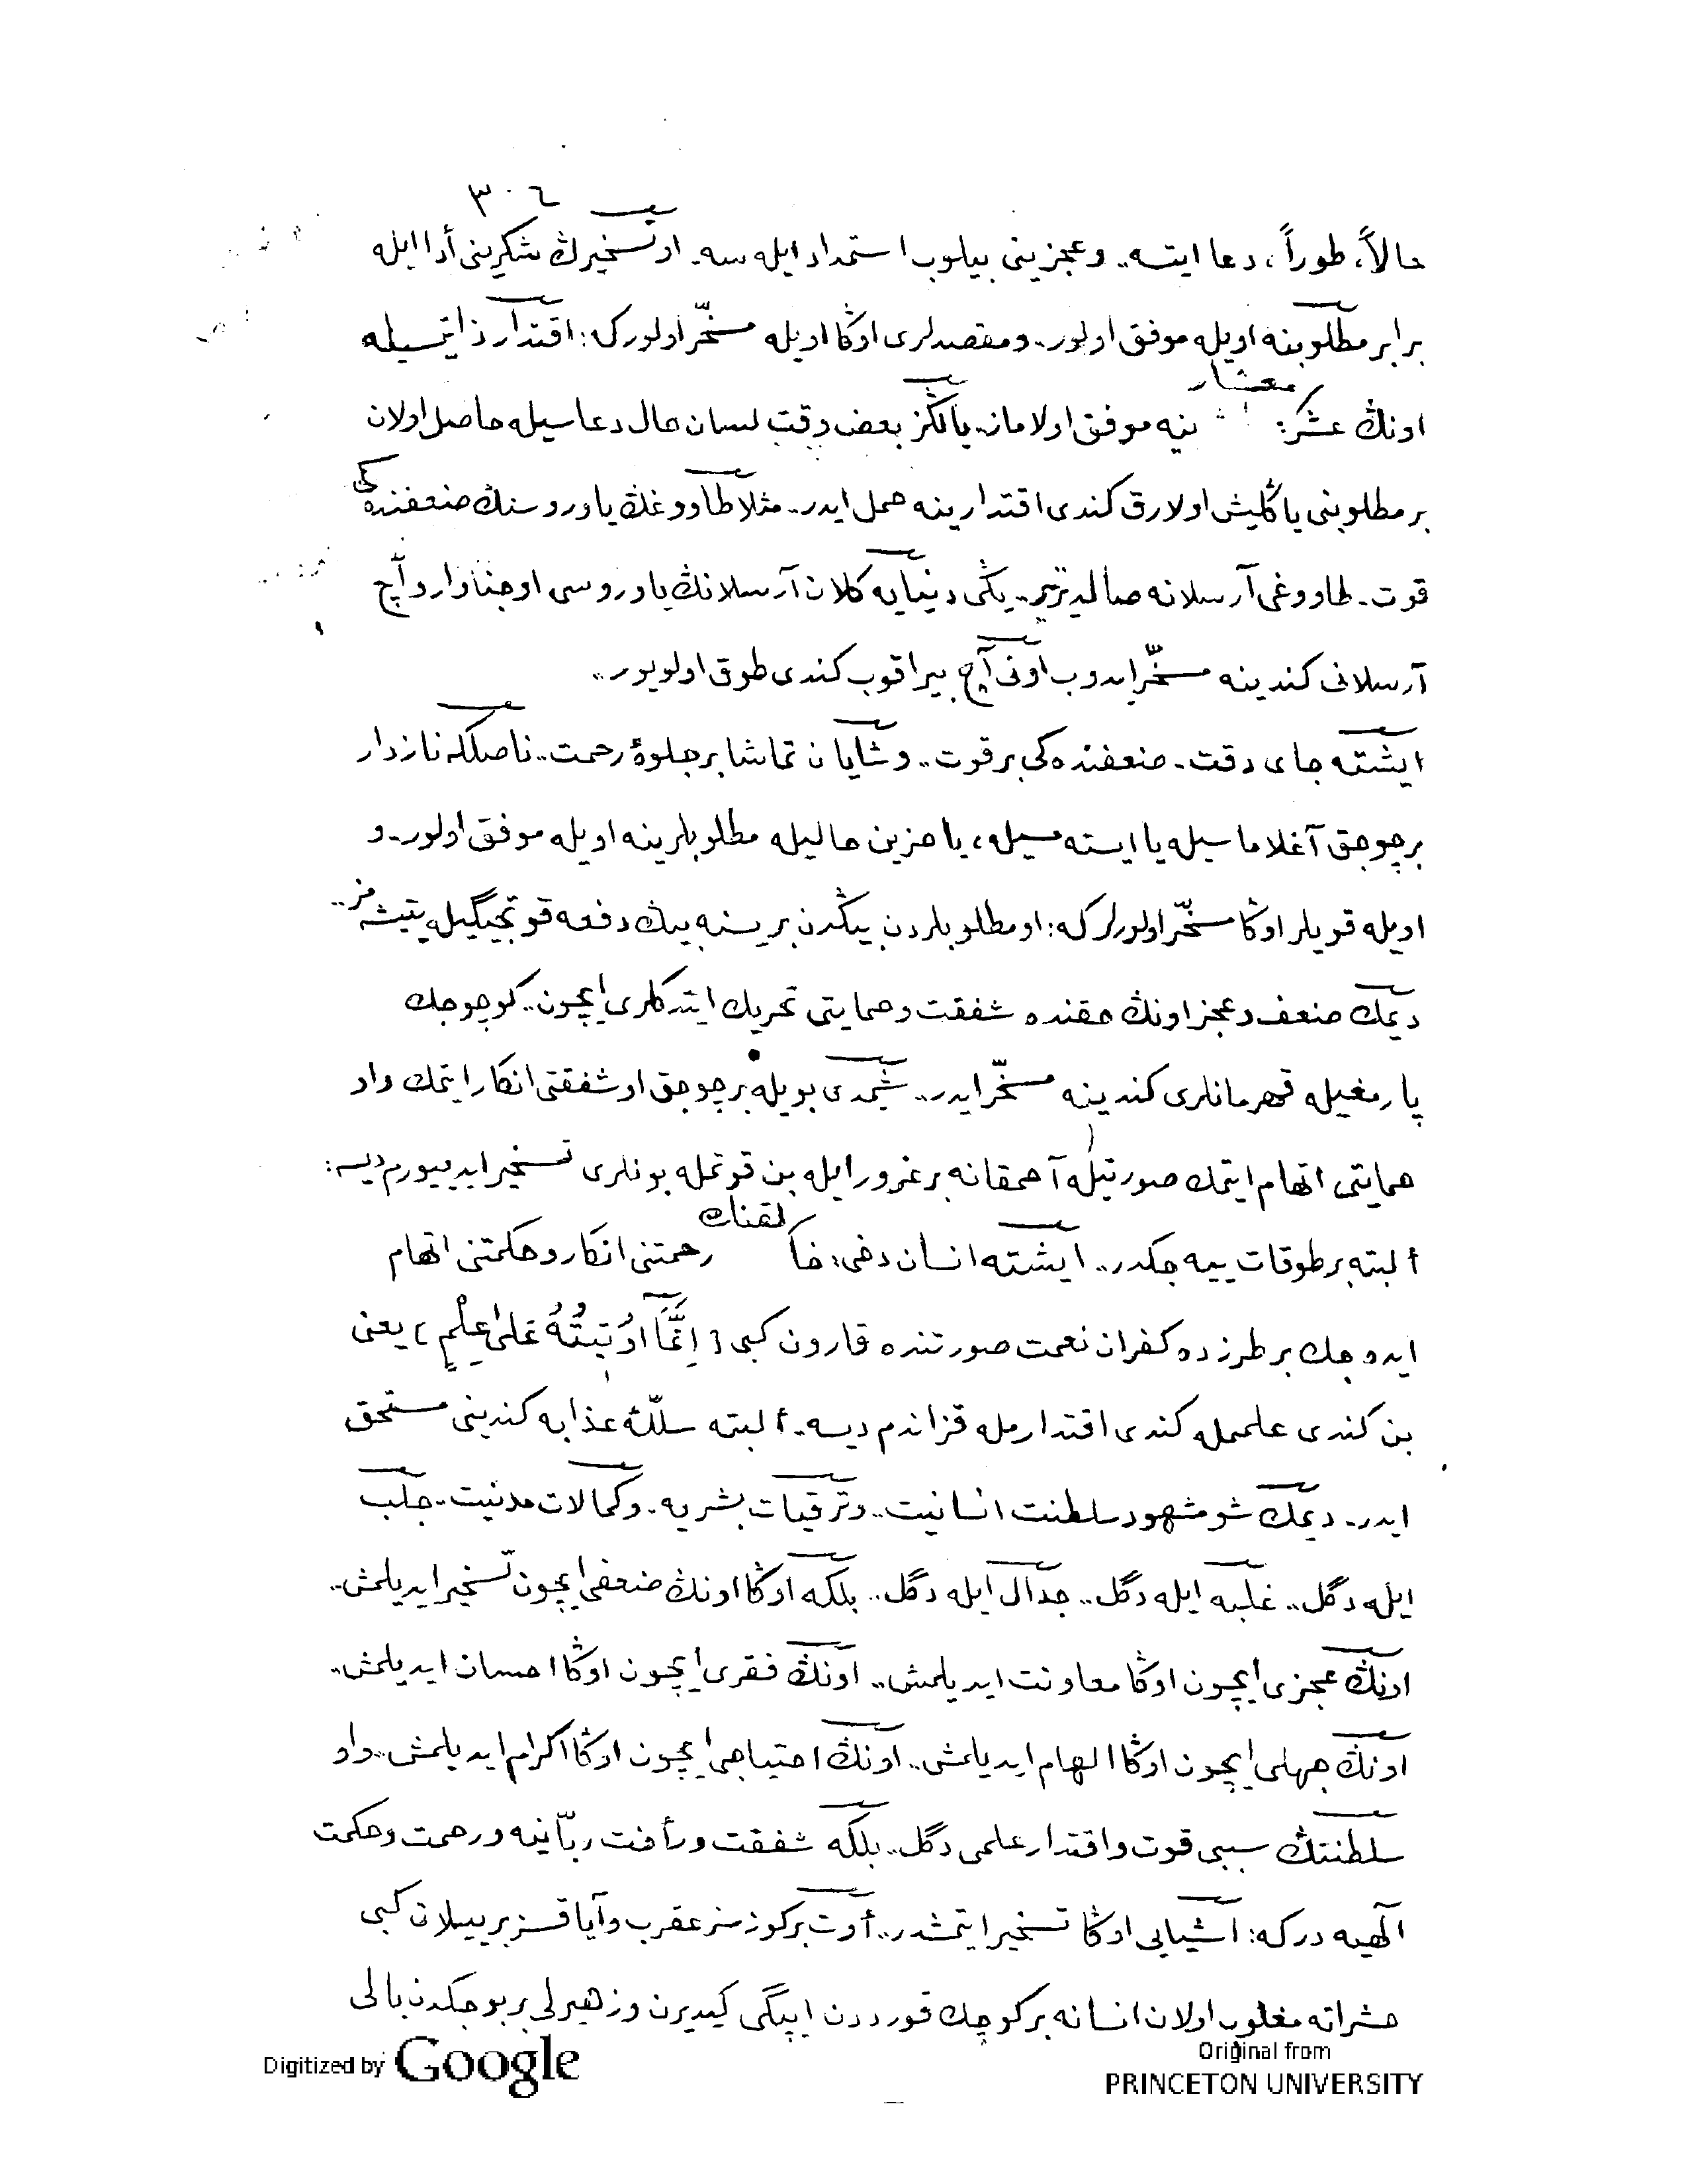 ٣٠٦
حالاً، طوراً، دعا ايتسه.. وعجزينى بيلوب استمداد ايله سه. او تسخيرڭ شكرينى أدا ايله
برابر مطلوبنه اويله موفق اولور.. ومقصدلرى اوڭا اويله مسخّر اولور كه: اقتدار ذاتيسيله
اونڭ عشر معشارينه موفق اولاماز. يالڭز بعض وقت لسان حال دعاسيله حاصل اولان
بر مطلوبنى ياڭليش اولارق كندى اقتدارينه حمل ايدر.. مثلا طاووغڭ ياوروسنڭ ضعفنده كى
قوت. طاووغى آرسلانه صالديرتير.. يڭى دنيايه كلان آرسلانڭ ياوروسى او جناوار و آچ
آرسلانى كندينه مسخّر ايدوب اونى آچ بيراقوب كندى طوق اولويور..
ايشته جاى دقت. ضعفنده كى بر قوت.. و شايان تماشا بر جلوۀ رحمت.. ناصلكه نازدار
بر چوجق آغلاماسيله يا ايسته مسيله، يا حزين حاليله مطلوبلرينه اويله موفق اولور. و
اويله قويلر اوڭا مسخّر اولورلر كه: او مطلوبلردن بيڭدن بريسنه بيڭ دفعه قوتجيگيله يتيشه مز..
ديمك ضعف و عجز اونڭ حقنده شفقت و حمايتى تحريك ايتدكلرى ايچون.. كوچوجك
پارمغيله قهرمانلرى كندينه مسخّر ايدر.. شيمدى بويله بر چوجق او شفقتى انكار ايتمك واو
حمايتى اتهام ايتمك صورتيله آحمقانه بر غرور ايله بن قوتمله بونلرى تسخير ايدييورم ديسه:
ألبته بر طوقات ييه جكدر.. ايشته انسان دخى: خالقنك رحمتنى انكار و حكمتنى اتهام
ايده جك بر طرزده كفران نعمت صورتنده قارون كبى [ اِنَّمَٓا اُو۫تٖيتُهُ عَلٰى عِلْمٍ ] يعنى
بن كندى علممله كندى اقتدارمله قزاندم ديسه. ألبته سلّۀ عذابه كندينى مستحق
ايدر.. ديمك شو مشهود سلطنت انسانيت.. و ترقيات بشريه. وكمالات مدنيت.. جلب
ايله دگل.. غلبه ايله دگل.. جدال ايله دگل.. بلكه اوڭا اونڭ ضعفى ايچون تسخير ايديلمش..
اونڭ عجزى ايچون اوڭا معاونت ايديلمش.. اونڭ فقرى ايچون اوڭا احسان ايديلمش..
اونڭ جهلى ايچون اوڭا الهام ايديلمش.. اونڭ احتياجى ايچون اوڭا اكرام ايديلمش.. واو
سلطنتڭ سببى قوت و اقتدار علمى دگل.. بلكه شفقت و رأفت ربّانيه و رحمت و حكمت
الٓهيه در كه: آشيايى اوڭا تسخير ايتمشدر.. أوت بر كوزسز عقرب و آياقسز بر ييلان كبى
حشراته مغلوب اولان انسانه بر كوچك قورددن ايپگى كيديرن و زهيرلى بر بوجكدن بالى
Digitized by Google
Original from
PRINCETON UNIVERSITY